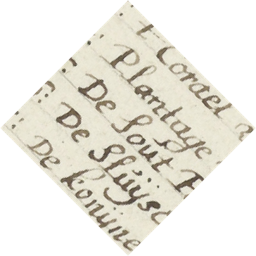 Corael
Plantage
De Sout
De Sluijse
De Konijne